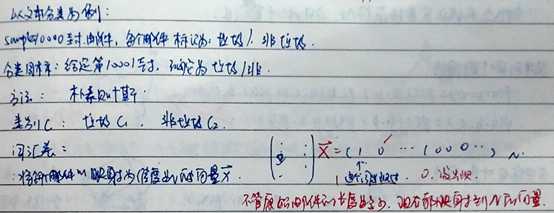 以文本分类为例:
sample 10000封邮件, 每个邮件标记为: 垃圾/非垃圾.
分类目标: 给定第10001封, 确定为垃圾/非.
方法: 朴素贝叶斯.
类别C: 垃圾C₁. 非垃圾C₂.
词汇表: x⃗=(1 0 ⋯ 1 0 0 0 ⋯) N.
将每个邮件m映射为维度为N的向量x⃗. 1 0. 没出现
不管原始邮件的长度多长, 现在都映射到N的向量